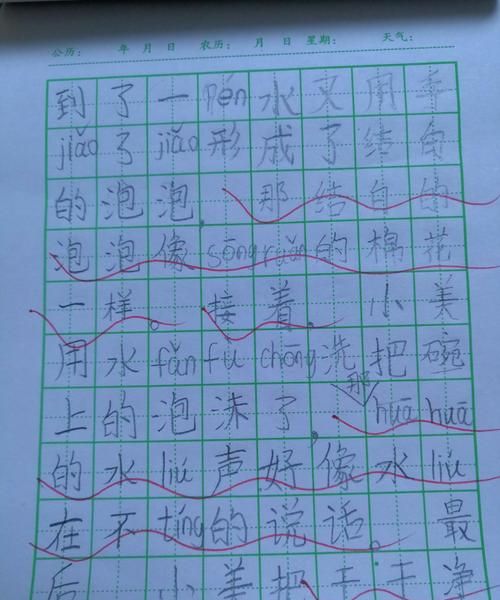 公历： 年 月 日 农历： 月 日 星期： 天气：
到了一pén水又用手
jiǎo了jiǎo形成了结白
的泡泡，那结白的
泡泡像sōng ruǎn的棉花
一样。接着，小美
用水fǎn fù chōng洗把碗
上的泡沫了，那huā huā
的水liú声好像水liú
在不tíng的说话。最
后，小美把干干净